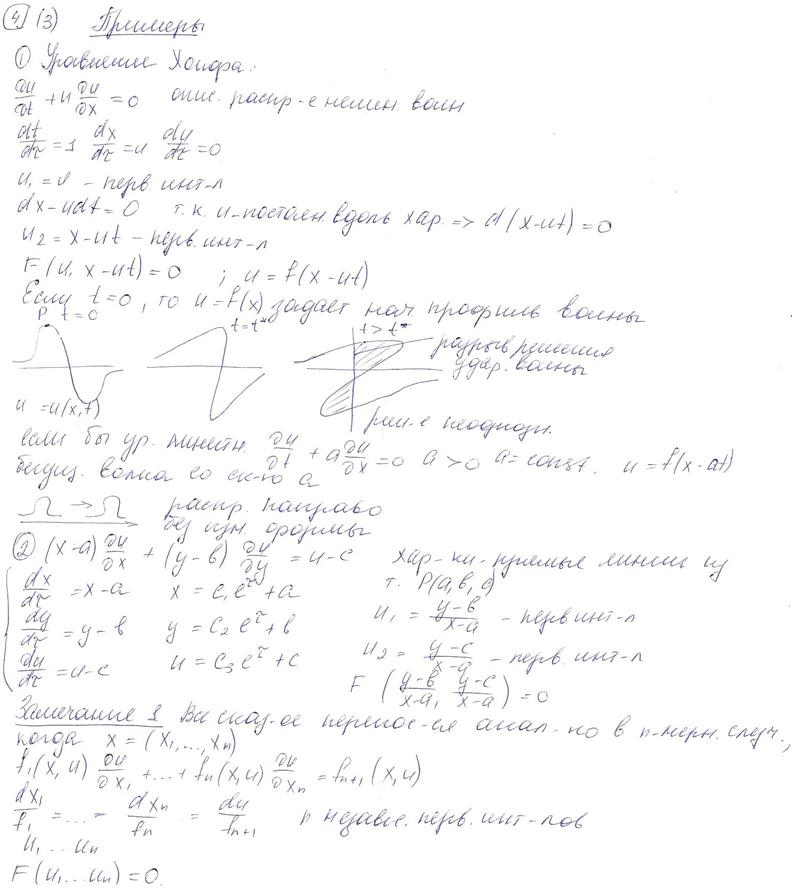 4 (3) Примеры
① Уравнение Хопфа:
∂u/∂t + u ∂u/∂x = 0 опис. распр-е нелин. волн
dt/dτ = 1 dx/dτ = u du/dτ = 0
u₁ = u - перв. инт-л
dx - udt = 0 т.к. u - постоян. вдоль хар. => d(x-ut) = 0
u₂ = x - ut - перв. инт-л
F(u, x-ut) = 0 ; u = f(x-ut)
Если t=0, то u = f(x) задает нач. профиль волны
P t=0 t=t* t>t* разрыв решения
удар. волны
u = u(x,t) реш-е неоднозн.
если бы ур. линейн. ∂u/∂t + a ∂u/∂x = 0 a>0 a=const. u = f(x-at)
бегущ. волна со ск-ю a
распр. направо
без изм. формы
② (x-a) ∂u/∂x + (y-b) ∂u/∂y = u-c хар-ки - прямые линии из
т. P(a,b,c)
dx/dτ = x-a x = c₁e^τ + a u₁ = (y-b)/(x-a) - перв инт-л
dy/dτ = y-b y = c₂e^τ + b u₂ = (y-c)/(x-a) - перв. инт-л
du/dτ = u-c u = c₃e^τ + c F((y-b)/(x-a), (y-c)/(x-a)) = 0
Замечание 1 Все сказ-ое перенос-ся анал-но в n-мерн. случ.,
когда x = (x₁,...,xₙ)
f₁(x,u) ∂u/∂x₁ + ... + fₙ(x,u) ∂u/∂xₙ = fₙ₊₁(x,u)
dx₁/f₁ = ... = dxₙ/fₙ = du/fₙ₊₁ n независ. перв. инт-лов
u₁ ... uₙ
F(u₁ ... uₙ) = 0.